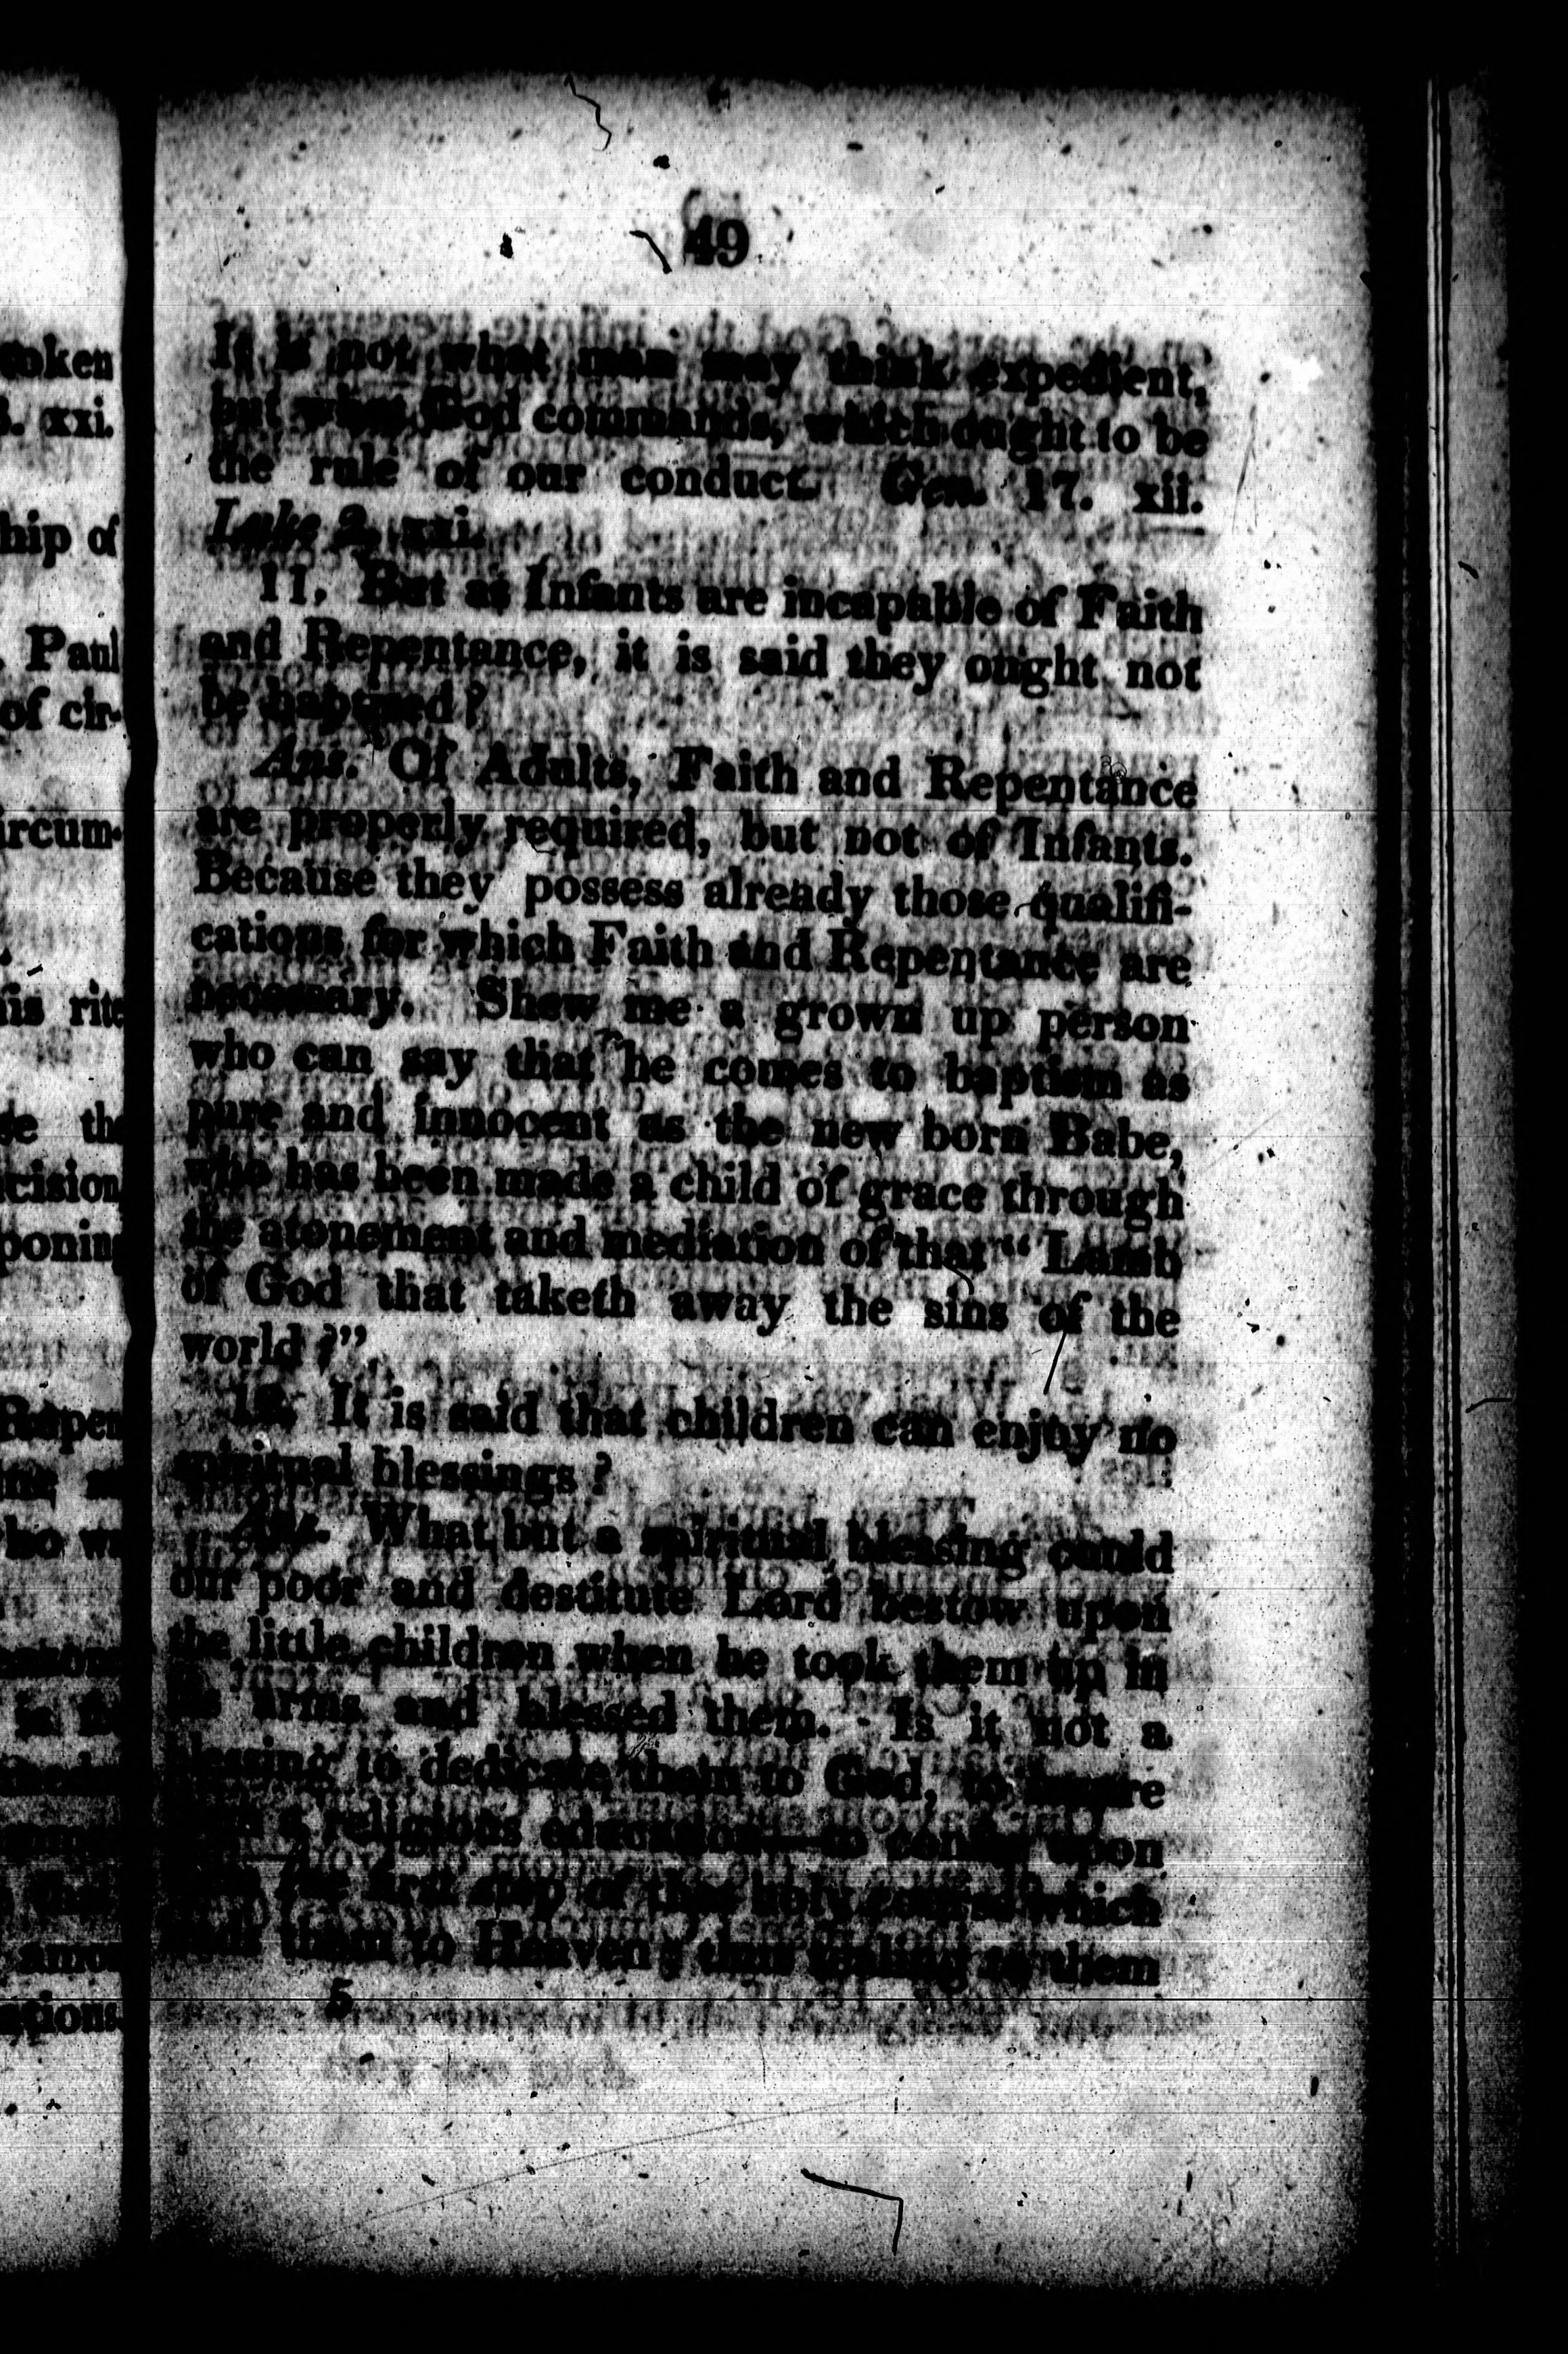 49
It is not what man may think expedient,
but what God commands, which ought to be
the rule of our conduct. Gen. 17. xii.
Luke 2. xxi.
11. But as Infants are incapable of Faith
and Repentance, it is said they ought not
be baptized?
Ans. Of Adults, Faith and Repentance
are properly required, but not of Infants.
Because they possess already those qualifi-
cations for which Faith and Repentance are
necessary. Shew me a grown up person
who can say that he comes to baptism as
pure and innocent as the new born Babe,
who has been made a child of grace through
the atonement and mediation of that "Lamb
of God that taketh away the sins of the
world?"
12. It is said that children can enjoy no
spiritual blessings?
Ans. What but a spiritual blessing could
our poor and destitute Lord bestow upon
the little children when he took them up in
arms and blessed them. Is it not a
blessing to dedicate them to God, to
a religious education—to confer upon
the first step of that holy course which
them to Heaven; thus sealing to them
5
oken
xxi.
hip of
Paul
of cir-
ircum-
his rite
the
cision
poning
amon
ations.